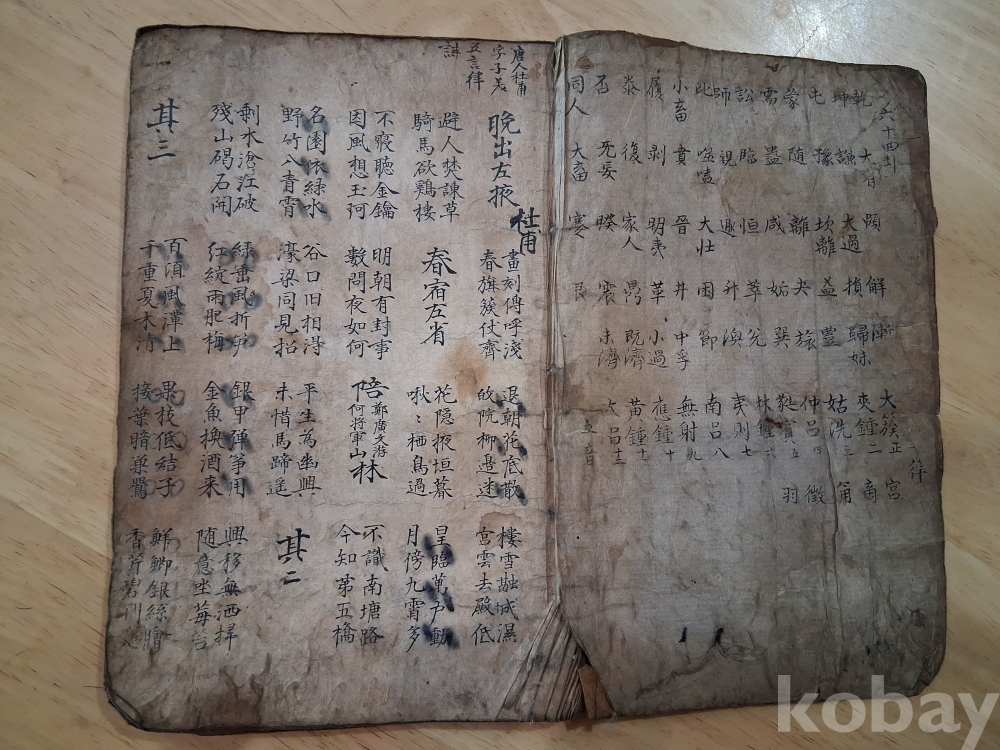 六十四卦
乾 坤 屯 蒙 需 訟 師 比 小畜 履 泰 否 同人
大有 謙 豫 随 蠱 臨 觀 噬嗑 賁 剥 復 无妄 大畜
頤 大過 坎 離 咸 恒 遯 大壮 晉 明夷 家人 睽 蹇
解 損 益 夬 姤 萃 升 困 井 革 鼎 震 艮
漸 歸妹 豊 旅 巽 兌 渙 節 中孚 小過 既濟 未濟
大簇正
夾鍾二
姑洗三
仲呂四
蕤賓五
林鍾六
夷則七
南呂八
無射九
應鍾十
黃鍾十一
大呂十二
五音
宮 商 角 徵 羽
唐人杜甫
字子美
五言律
詩
晩出左掖
杜甫
晝刻傳呼淺
春旗簇仗齊
退朝花底散
皈院柳邊迷
樓雪融城濕
宮雲去殿低
避人焚諫草
騎馬欲鷄棲
春宿左省
花隠掖垣暮
啾〻栖鳥過
星臨萬户動
月傍九霄多
不寢聽金鑰
因風想玉珂
明朝有封事
數問夜如何
陪鄭廣文游何將軍山林
不識南塘路
今知第五橋
名園依綠水
野竹入青霄
谷口旧相得
濠梁同見招
平生為幽興
未惜馬蹄遥
其二
剩水滄江破
殘山碣石開
綠垂風折笋
紅綻雨肥梅
銀甲彈箏用
金魚換酒来
興移無洒掃
随意坐莓苔
其三
百頃風潭上
千重夏木清
果枝低結子
接葉暗巢鶯
鮮鯽銀絲膾
香芹碧澗
kobay